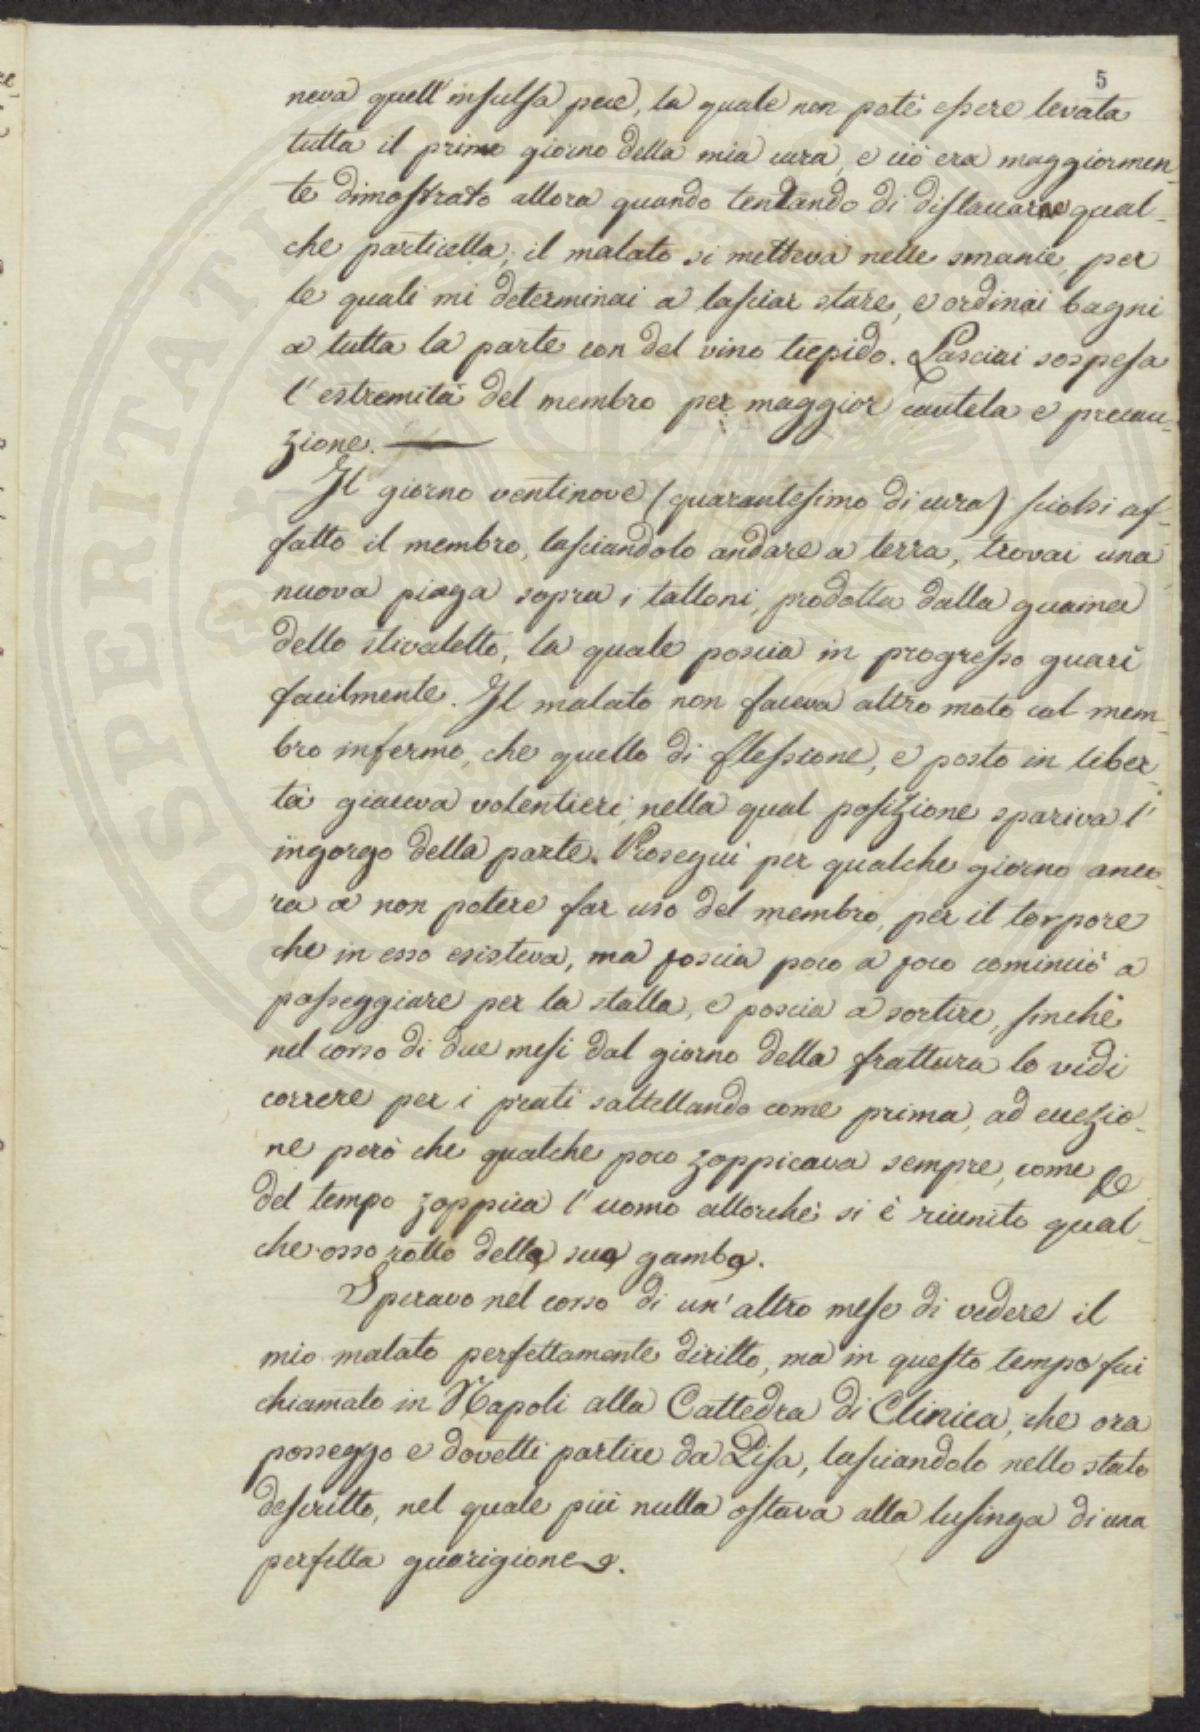 5
neva quell'insulsa pece, la quale non potè essere levata
tutta il primo giorno della mia cura, e ciò era maggiormen-
te dimostrato allora quando tentando di distaccarne qual-
che particella, il malato si metteva nelle smanie, per
le quali mi determinai a lasciar stare, e ordinai bagni
a tutta la parte con del vino tiepido. Lasciai sospesa
l'estremità del membro per maggior cautela e precau-
zione.
Il giorno ventinove (quarantesimo di cura) sciolsi af-
fatto il membro, lasciandolo andare a terra, trovai una
nuova piaga sopra i talloni, prodotta dalla guaina
dello stivaletto, la quale poscia in progresso guarì
facilmente. Il malato non faceva altro moto col mem-
bro infermo, che quello di flessione, e posto in liber-
tà giaceva volentieri, nella qual posizione spariva l'
ingorgo della parte. Proseguì per qualche giorno anco-
ra a non potere far uso del membro, per il torpore
che in esso esisteva, ma poscia poco a poco cominciò a
passeggiare per la stalla, e poscia a sortire, sinchè
nel corso di due mesi dal giorno della frattura lo vidi
correre per i prati saltellando come prima, ad eccezio-
ne però che qualche poco zoppicava sempre, come
del tempo zoppica l'uomo allorchè si è riunito qual-
che osso rotto della sua gamba.
Speravo nel corso di un'altro mese di vedere il
mio malato perfettamente diritto, ma in questo tempo fui
chiamato in Napoli alla Cattedra di Clinica, che ora
posseggo e dovetti partire da Pisa, lasciandolo nello stato
descritto, nel quale più nulla ostava alla lusinga di una
perfetta guarigione.
SPERITATI